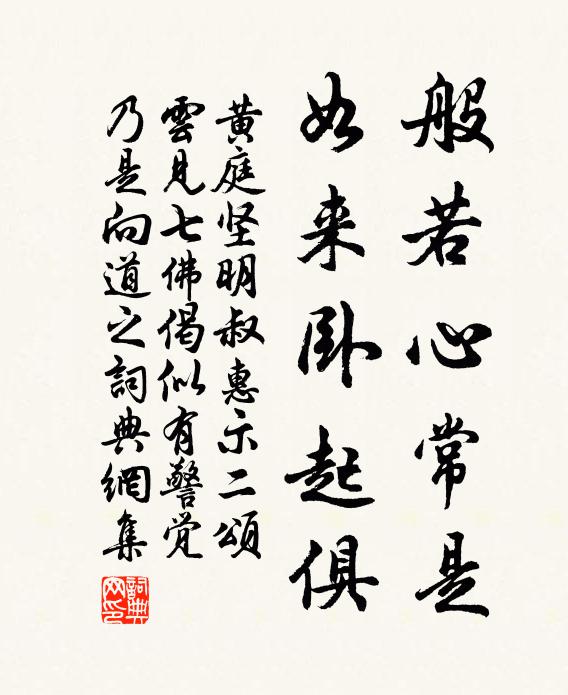 般若心常是
如来卧起俱
黄庭坚明叔惠示二頌
雲見七佛偈似有警觉
乃是向道之詞典網集
詞典网印